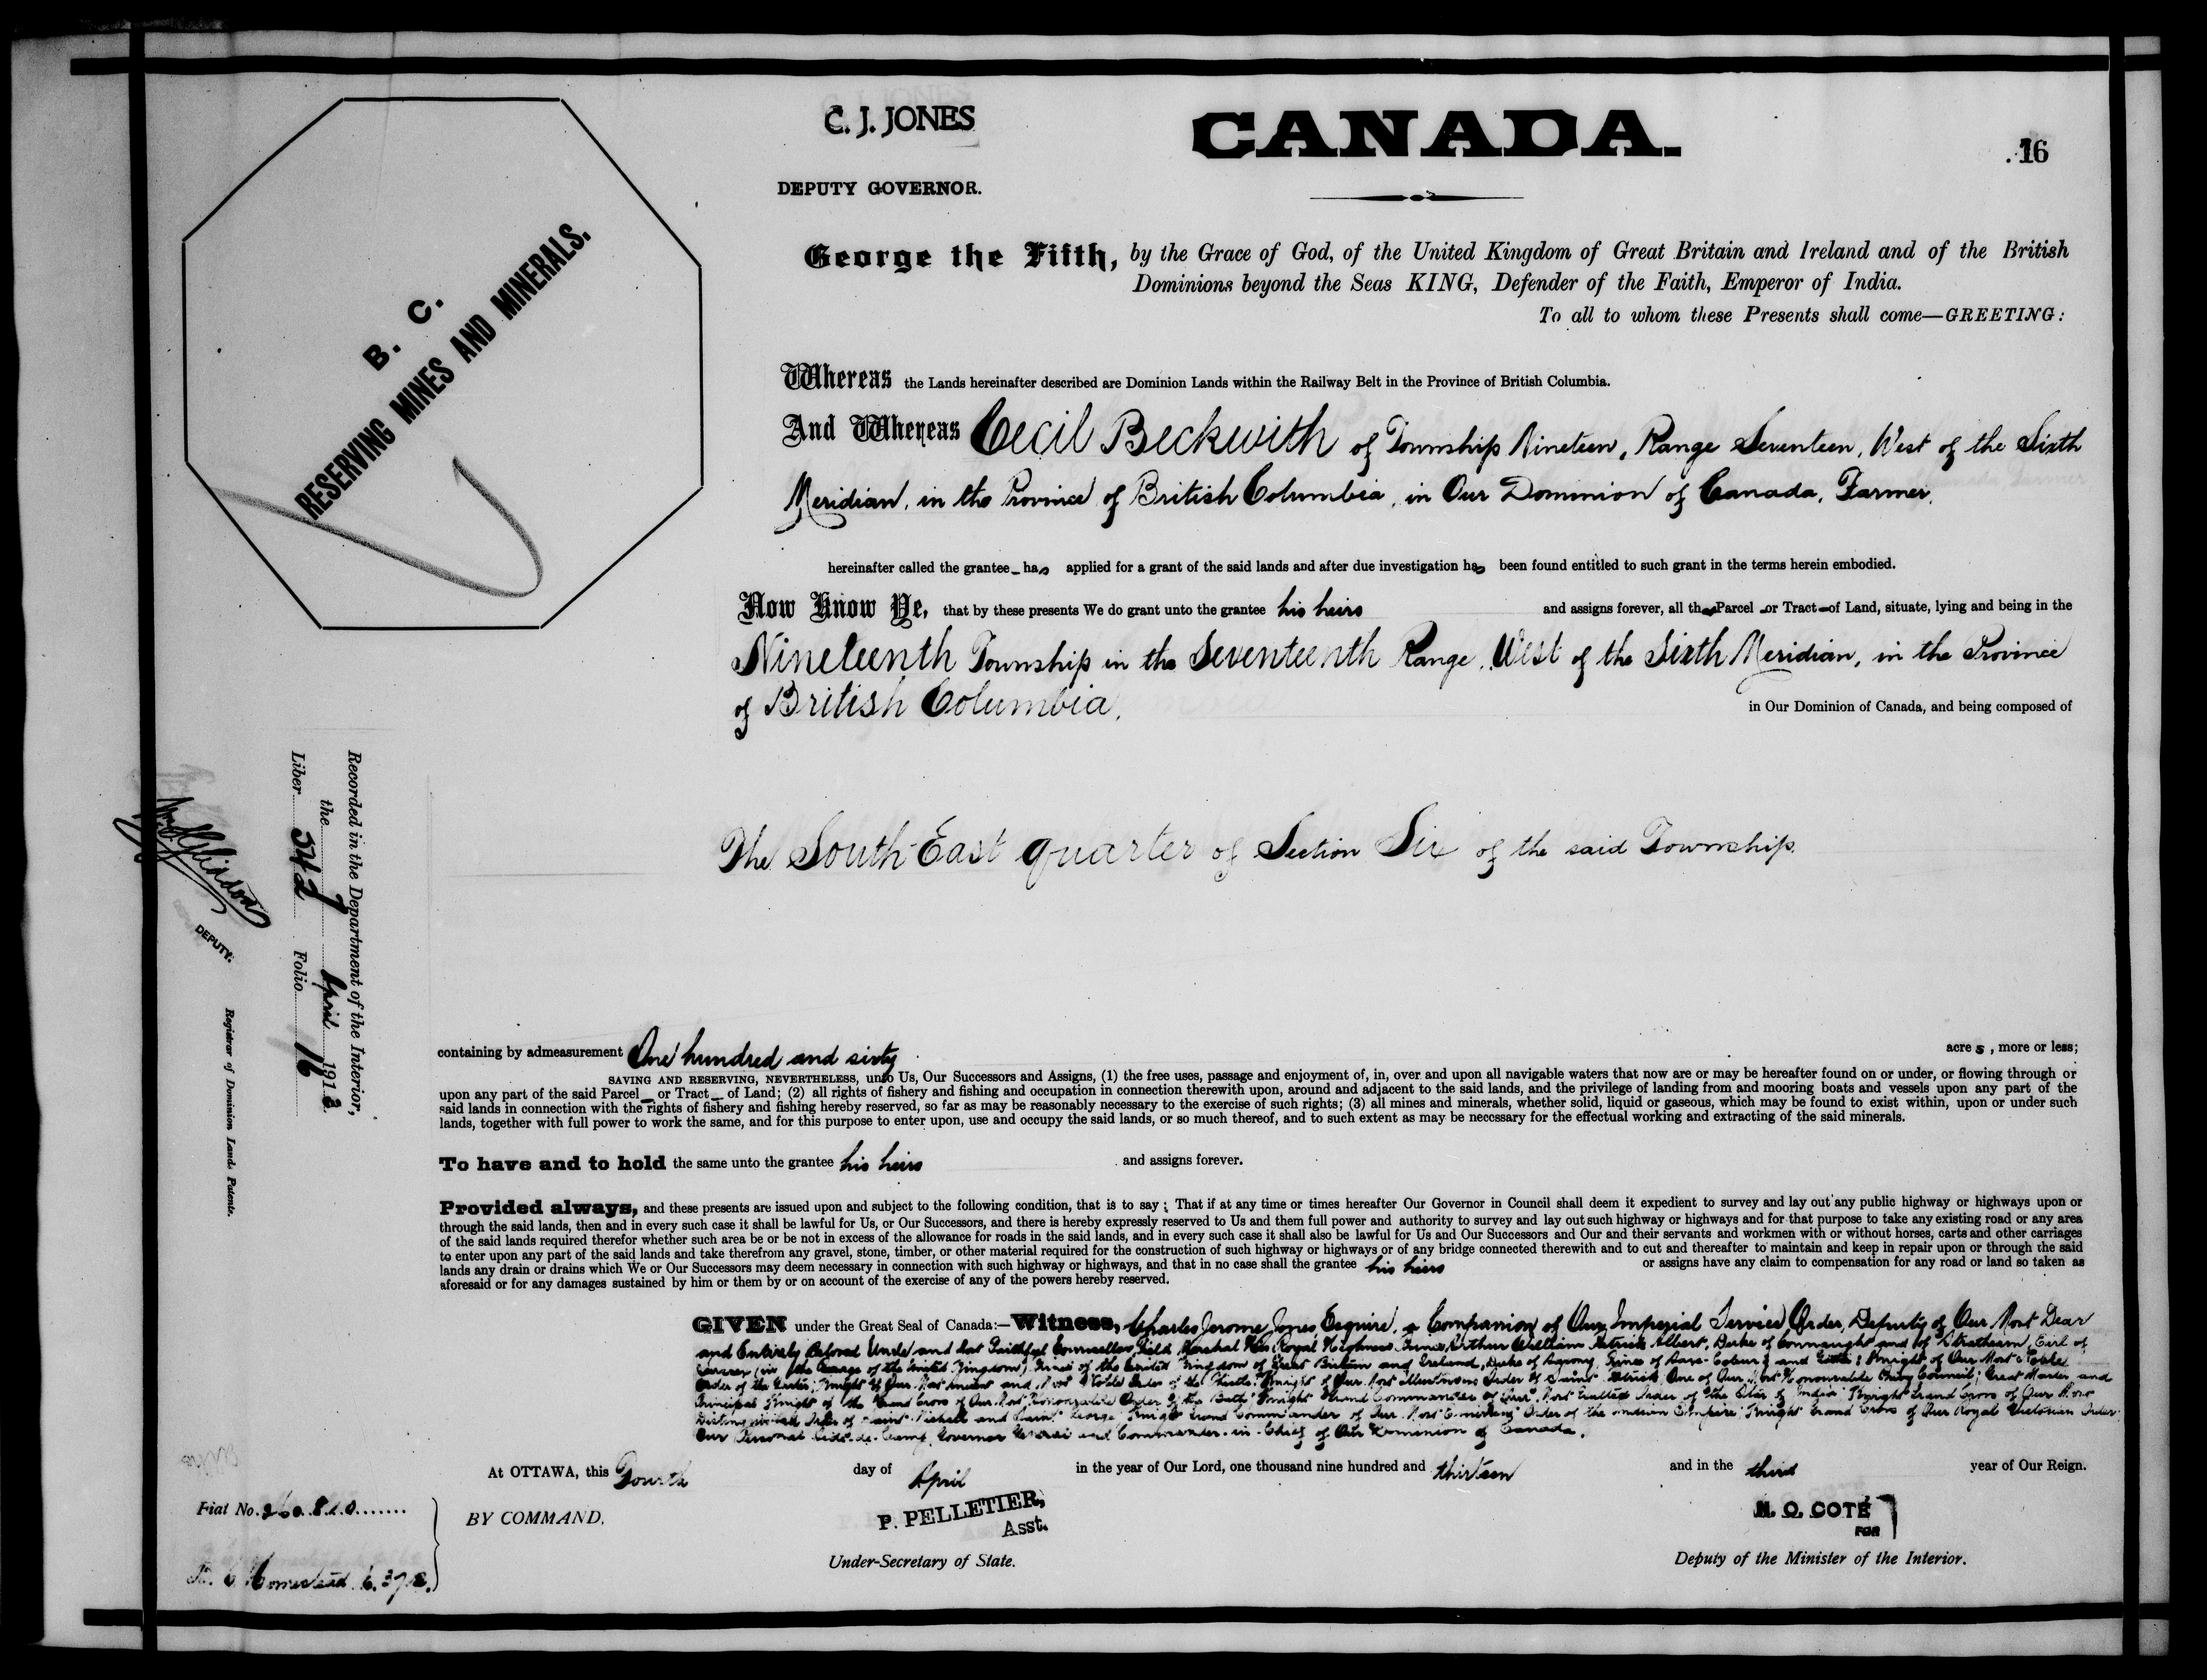 C. J. JONES
CANADA.
16
DEPUTY GOVERNOR.
B. C.
RESERVING MINES AND MINERALS.
George the Fifth, by the Grace of God, of the United Kingdom of Great Britain and Ireland and of the British
Dominions beyond the Seas KING, Defender of the Faith, Emperor of India.
To all to whom these Presents shall come—GREETING:
Whereas the Lands hereinafter described are Dominion Lands within the Railway Belt in the Province of British Columbia.
And Whereas Cecil Beckwith of Township Nineteen, Range Seventeen, West of the Sixth
Meridian, in the Province of British Columbia, in Our Dominion of Canada, Farmer,
hereinafter called the grantee has applied for a grant of the said lands and after due investigation has been found entitled to such grant in the terms herein embodied.
Now Know Ye, that by these presents We do grant unto the grantee his heirs and assigns forever, all that Parcel or Tract of Land, situate, lying and being in the
Nineteenth Township in the Seventeenth Range, West of the Sixth Meridian, in the Province
of British Columbia, in Our Dominion of Canada, and being composed of
The South East quarter of Section Six of the said Township.
Recorded in the Department of the Interior,
the 7 April 1913
Liber 542 Folio 16
DEPUTY.
Registrar of Dominion Lands Patents.
containing by admeasurement One hundred and sixty acre s, more or less;
SAVING AND RESERVING, NEVERTHELESS, unto Us, Our Successors and Assigns, (1) the free uses, passage and enjoyment of, in, over and upon all navigable waters that now are or may be hereafter found on or under, or flowing through or
upon any part of the said Parcel or Tract of Land; (2) all rights of fishery and fishing and occupation in connection therewith upon, around and adjacent to the said lands, and the privilege of landing from and mooring boats and vessels upon any part of the
said lands in connection with the rights of fishery and fishing hereby reserved, so far as may be reasonably necessary to the exercise of such rights; (3) all mines and minerals, whether solid, liquid or gaseous, which may be found to exist within, upon or under such
lands, together with full power to work the same, and for this purpose to enter upon, use and occupy the said lands, or so much thereof, and to such extent as may be necssary for the effectual working and extracting of the said minerals.
To have and to hold the same unto the grantee his heirs and assigns forever.
Provided always, and these presents are issued upon and subject to the following condition, that is to say; That if at any time or times hereafter Our Governor in Council shall deem it expedient to survey and lay out any public highway or highways upon or
through the said lands, then and in every such case it shall be lawful for Us, or Our Successors, and there is hereby expressly reserved to Us and them full power and authority to survey and lay out such highway or highways and for that purpose to take any existing road or any area
of the said lands required therefor whether such area be or be not in excess of the allowance for roads in the said lands, and in every such case it shall also be lawful for Us and Our Successors and Our and their servants and workmen with or without horses, carts and other carriages
to enter upon any part of the said lands and take therefrom any gravel, stone, timber, or other material required for the construction of such highway or highways or of any bridge connected therewith and to cut and thereafter to maintain and keep in repair upon or through the said
lands any drain or drains which We or Our Successors may deem necessary in connection with such highway or highways, and that in no case shall the grantee his heirs or assigns have any claim to compensation for any road or land so taken as
aforesaid or for any damages sustained by him or them by or on account of the exercise of any of the powers hereby reserved.
GIVEN under the Great Seal of Canada:—Witness, Charles Jerome Jones Esquire, a Companion of Our Imperial Service Order, Deputy of Our Most Dear
and Entirely Beloved Uncle and Most Faithful Counsellor, Field Marshal His Royal Highness Prince Arthur William Patrick Albert, Duke of Connaught and of Strathearn, Earl of
Sussex (in the Peerage of the United Kingdom), Prince of the United Kingdom of Great Britain and Ireland, Duke of Saxony, Prince of Saxe-Coburg and Gotha; Knight of Our Most Noble
Order of the Garter; Knight of Our Most Ancient and Most Noble Order of the Thistle; Knight of Our Most Illustrious Order of Saint Patrick; One of Our Most Honourable Privy Council; Great Master and
Principal Knight of the Grand Cross of Our Most Honourable Order of the Bath; Knight Grand Commander of Our Most Exalted Order of the Star of India; Knight Grand Cross of Our Most
Distinguished Order of Saint Michael and Saint George; Knight Grand Commander of Our Most Eminent Order of the Indian Empire; Knight Grand Cross of Our Royal Victorian Order;
Our Personal Aide-de-Camp, Governor General and Commander-in-Chief of Our Dominion of Canada.
At OTTAWA, this Fourth day of April in the year of Our Lord, one thousand nine hundred and thirteen and in the third year of Our Reign.
Fiat No. 260810
BY COMMAND,
P. PELLETIER,
Asst.
N. O. COTÉ
FOR
Under-Secretary of State.
Deputy of the Minister of the Interior.
Homestead